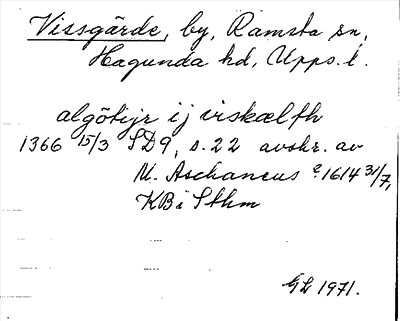 Vissgärde, by, Ramsta sn,
Hagunda hd, Upps. l.
algötijr ij viskælfh
1366 15/3 SD9, s. 22 avskr. av
M. Aschaneus e. 1614 31/7,
KB i Sthm
GL 1971.